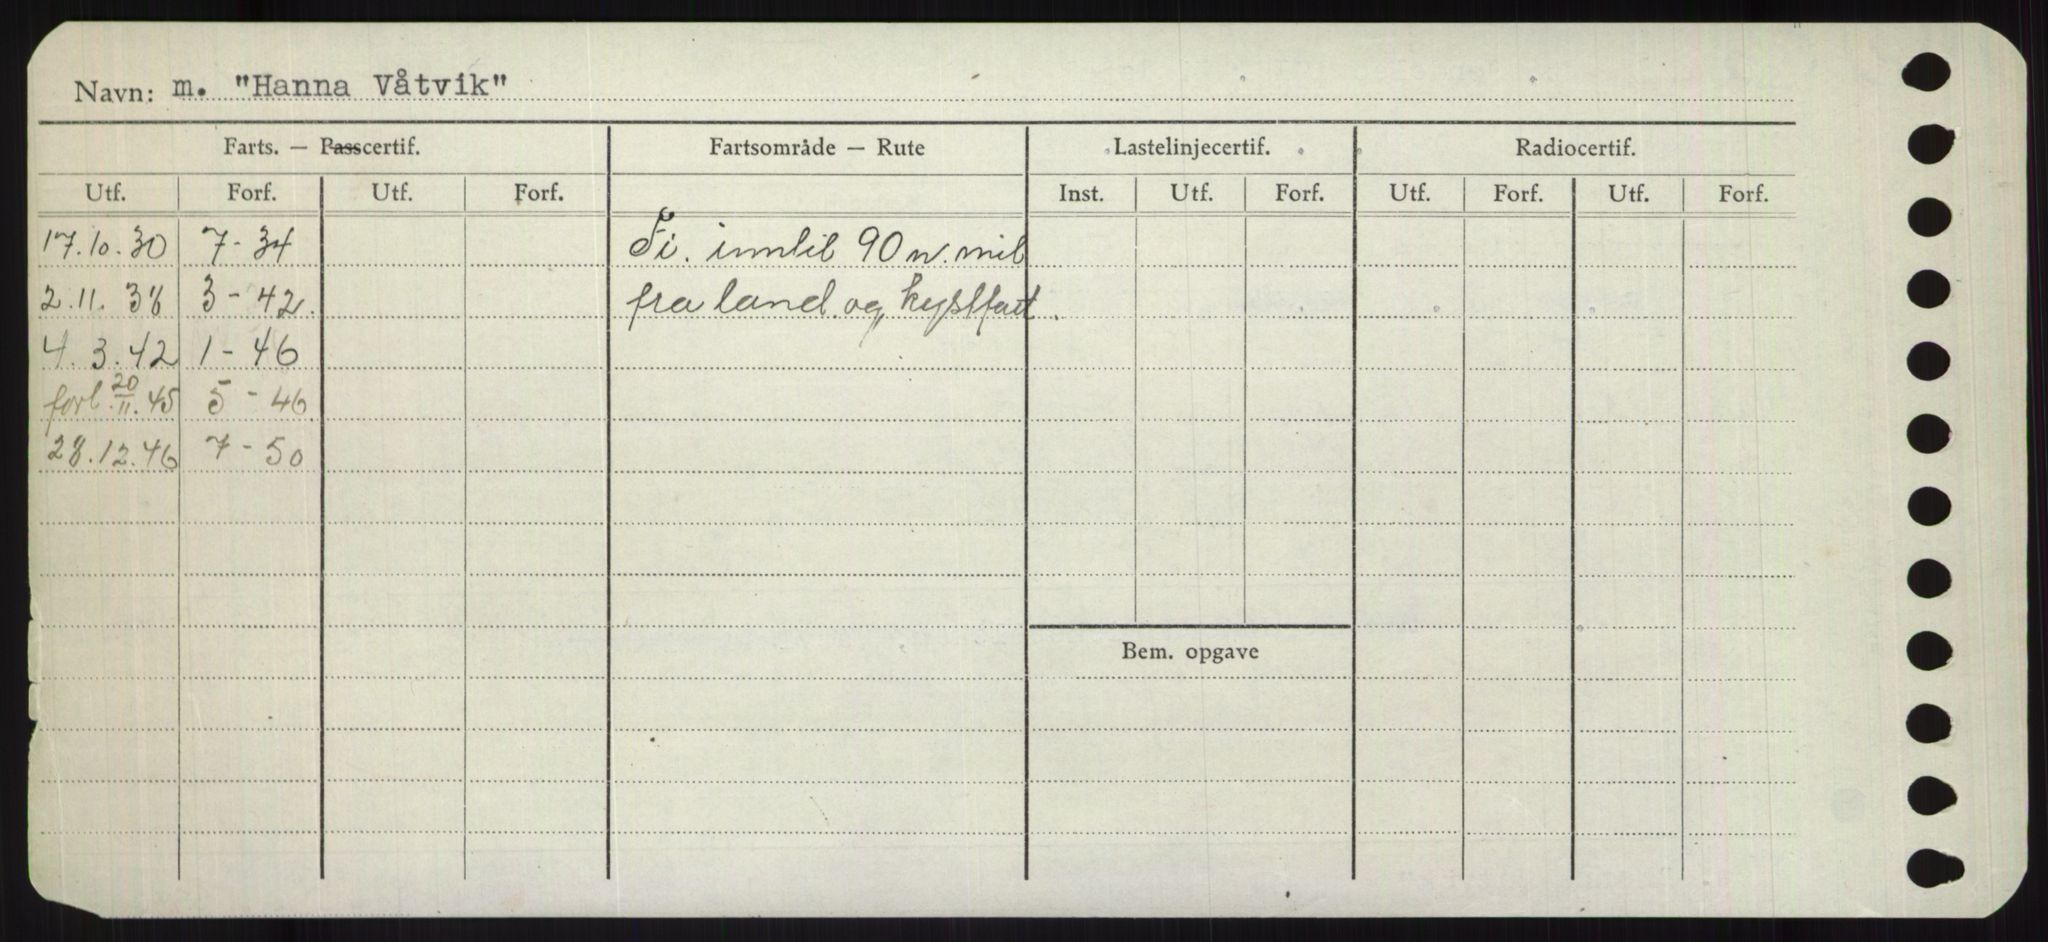 Navn: m. "Hanna Våtvik"
Farts. — Passcertif. Fartsområde — Rute Lastelinjecertif. Radiocertif.
Utf. Forf. Utf. Forf. Inst. Utf. Forf. Utf. Forf. Utf. Forf.
17.10.30 7-34 Fi. inntil 90 n. mil
2.11.38 3-42. fra land og kystfart.
4.3.42 1-46
forl. 20/11.45 5-46
28.12.46 7-50
Bem. opgave